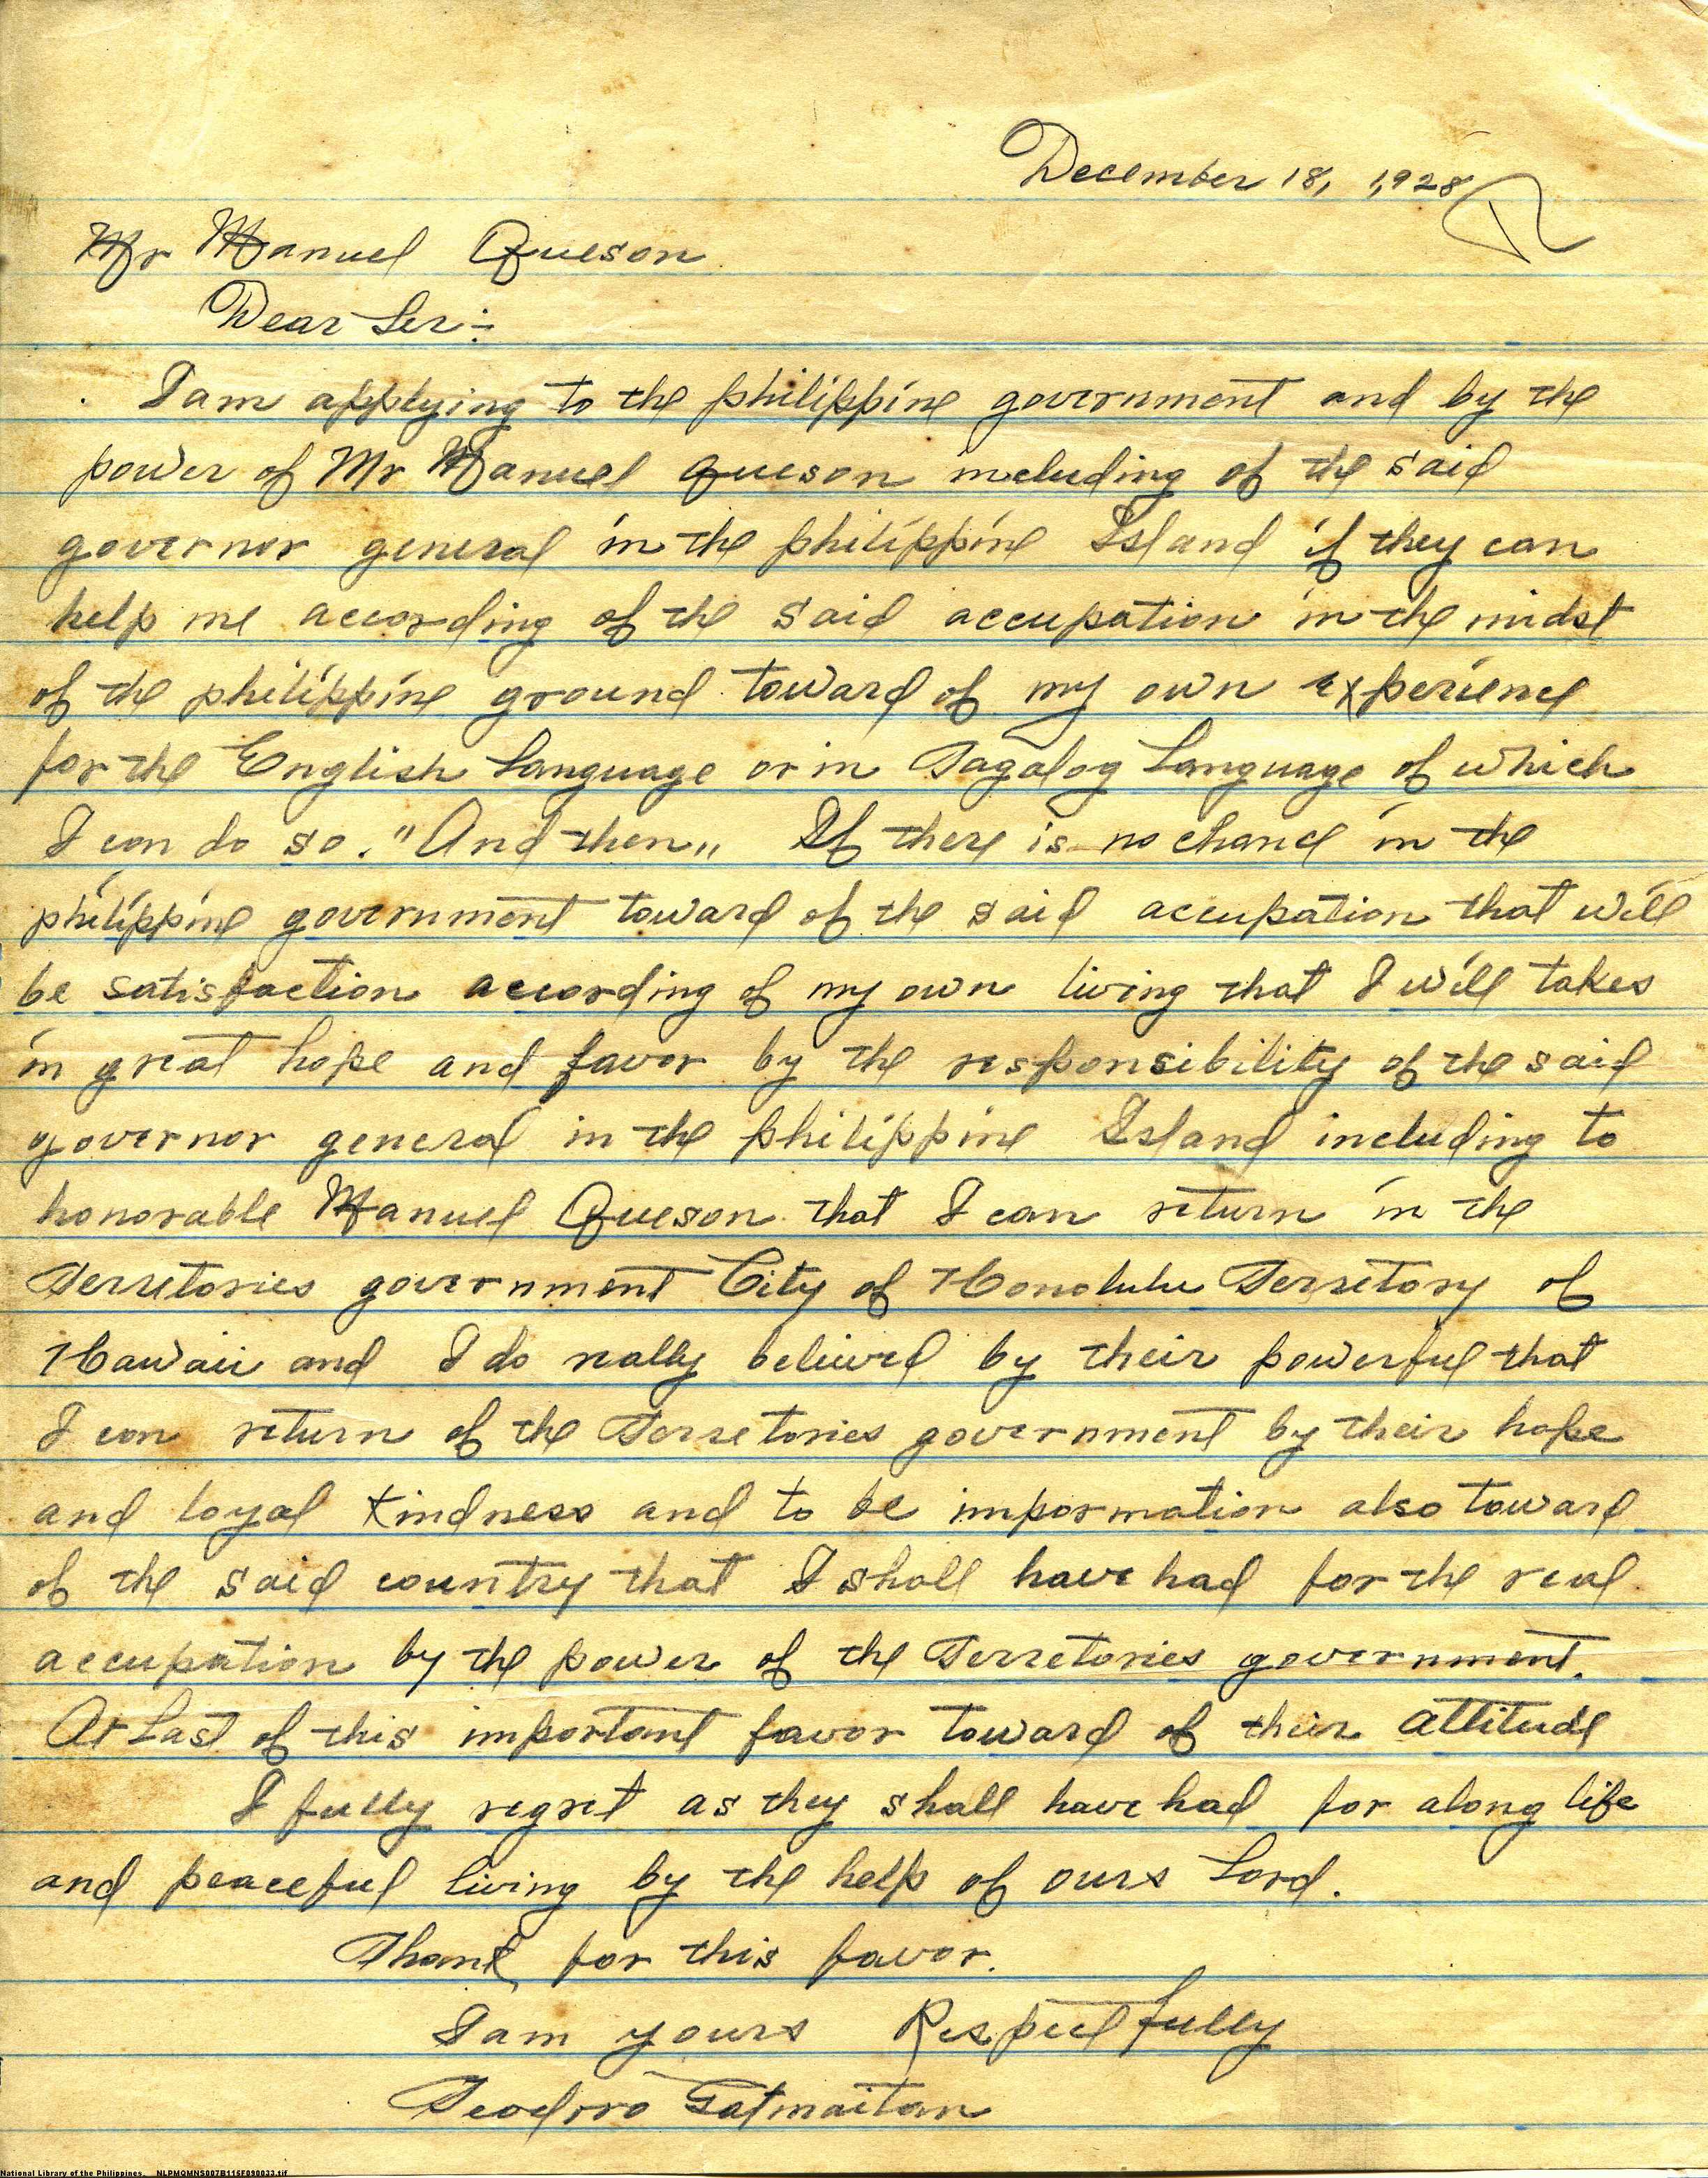 December 18, 1,928
Mr Manuel Queson
Dear Ser:-
I am applying to the philippine government and by the
power of Mr Manuel Queson including of the said
governor general in the philippine Island if they can
help me according of the said accupation in the midst
of the philippine ground toward of my own experience
for the English Language or in Tagalog Language of which
I can do so. "And then" If there is no chance in the
philippine government toward of the said accupation that will
be satisfaction according of my own living that I will takes
in great hope and favor by the responsibility of the said
governor general in the philippine Island including to
honorable Manuel Queson that I can return in the
Terretories government City of Honolulu Terretory of
Hawaii and I do really believed by their powerful that
I can return of the Terretories government by their hope
and loyal kindness and to be impormation also toward
of the said country that I shall have had for the real
accupation by the power of the Terretories government.
At Last of this important favor toward of their attitude
I fully regret as they shall have had for along life
and peaceful living by the help of ours Lord.
Thank for this favor.
I am yours Respectfully
Teodoro Gatmaitan
National Library of the Philippines. NLPMQMNS007B115F090033.tif